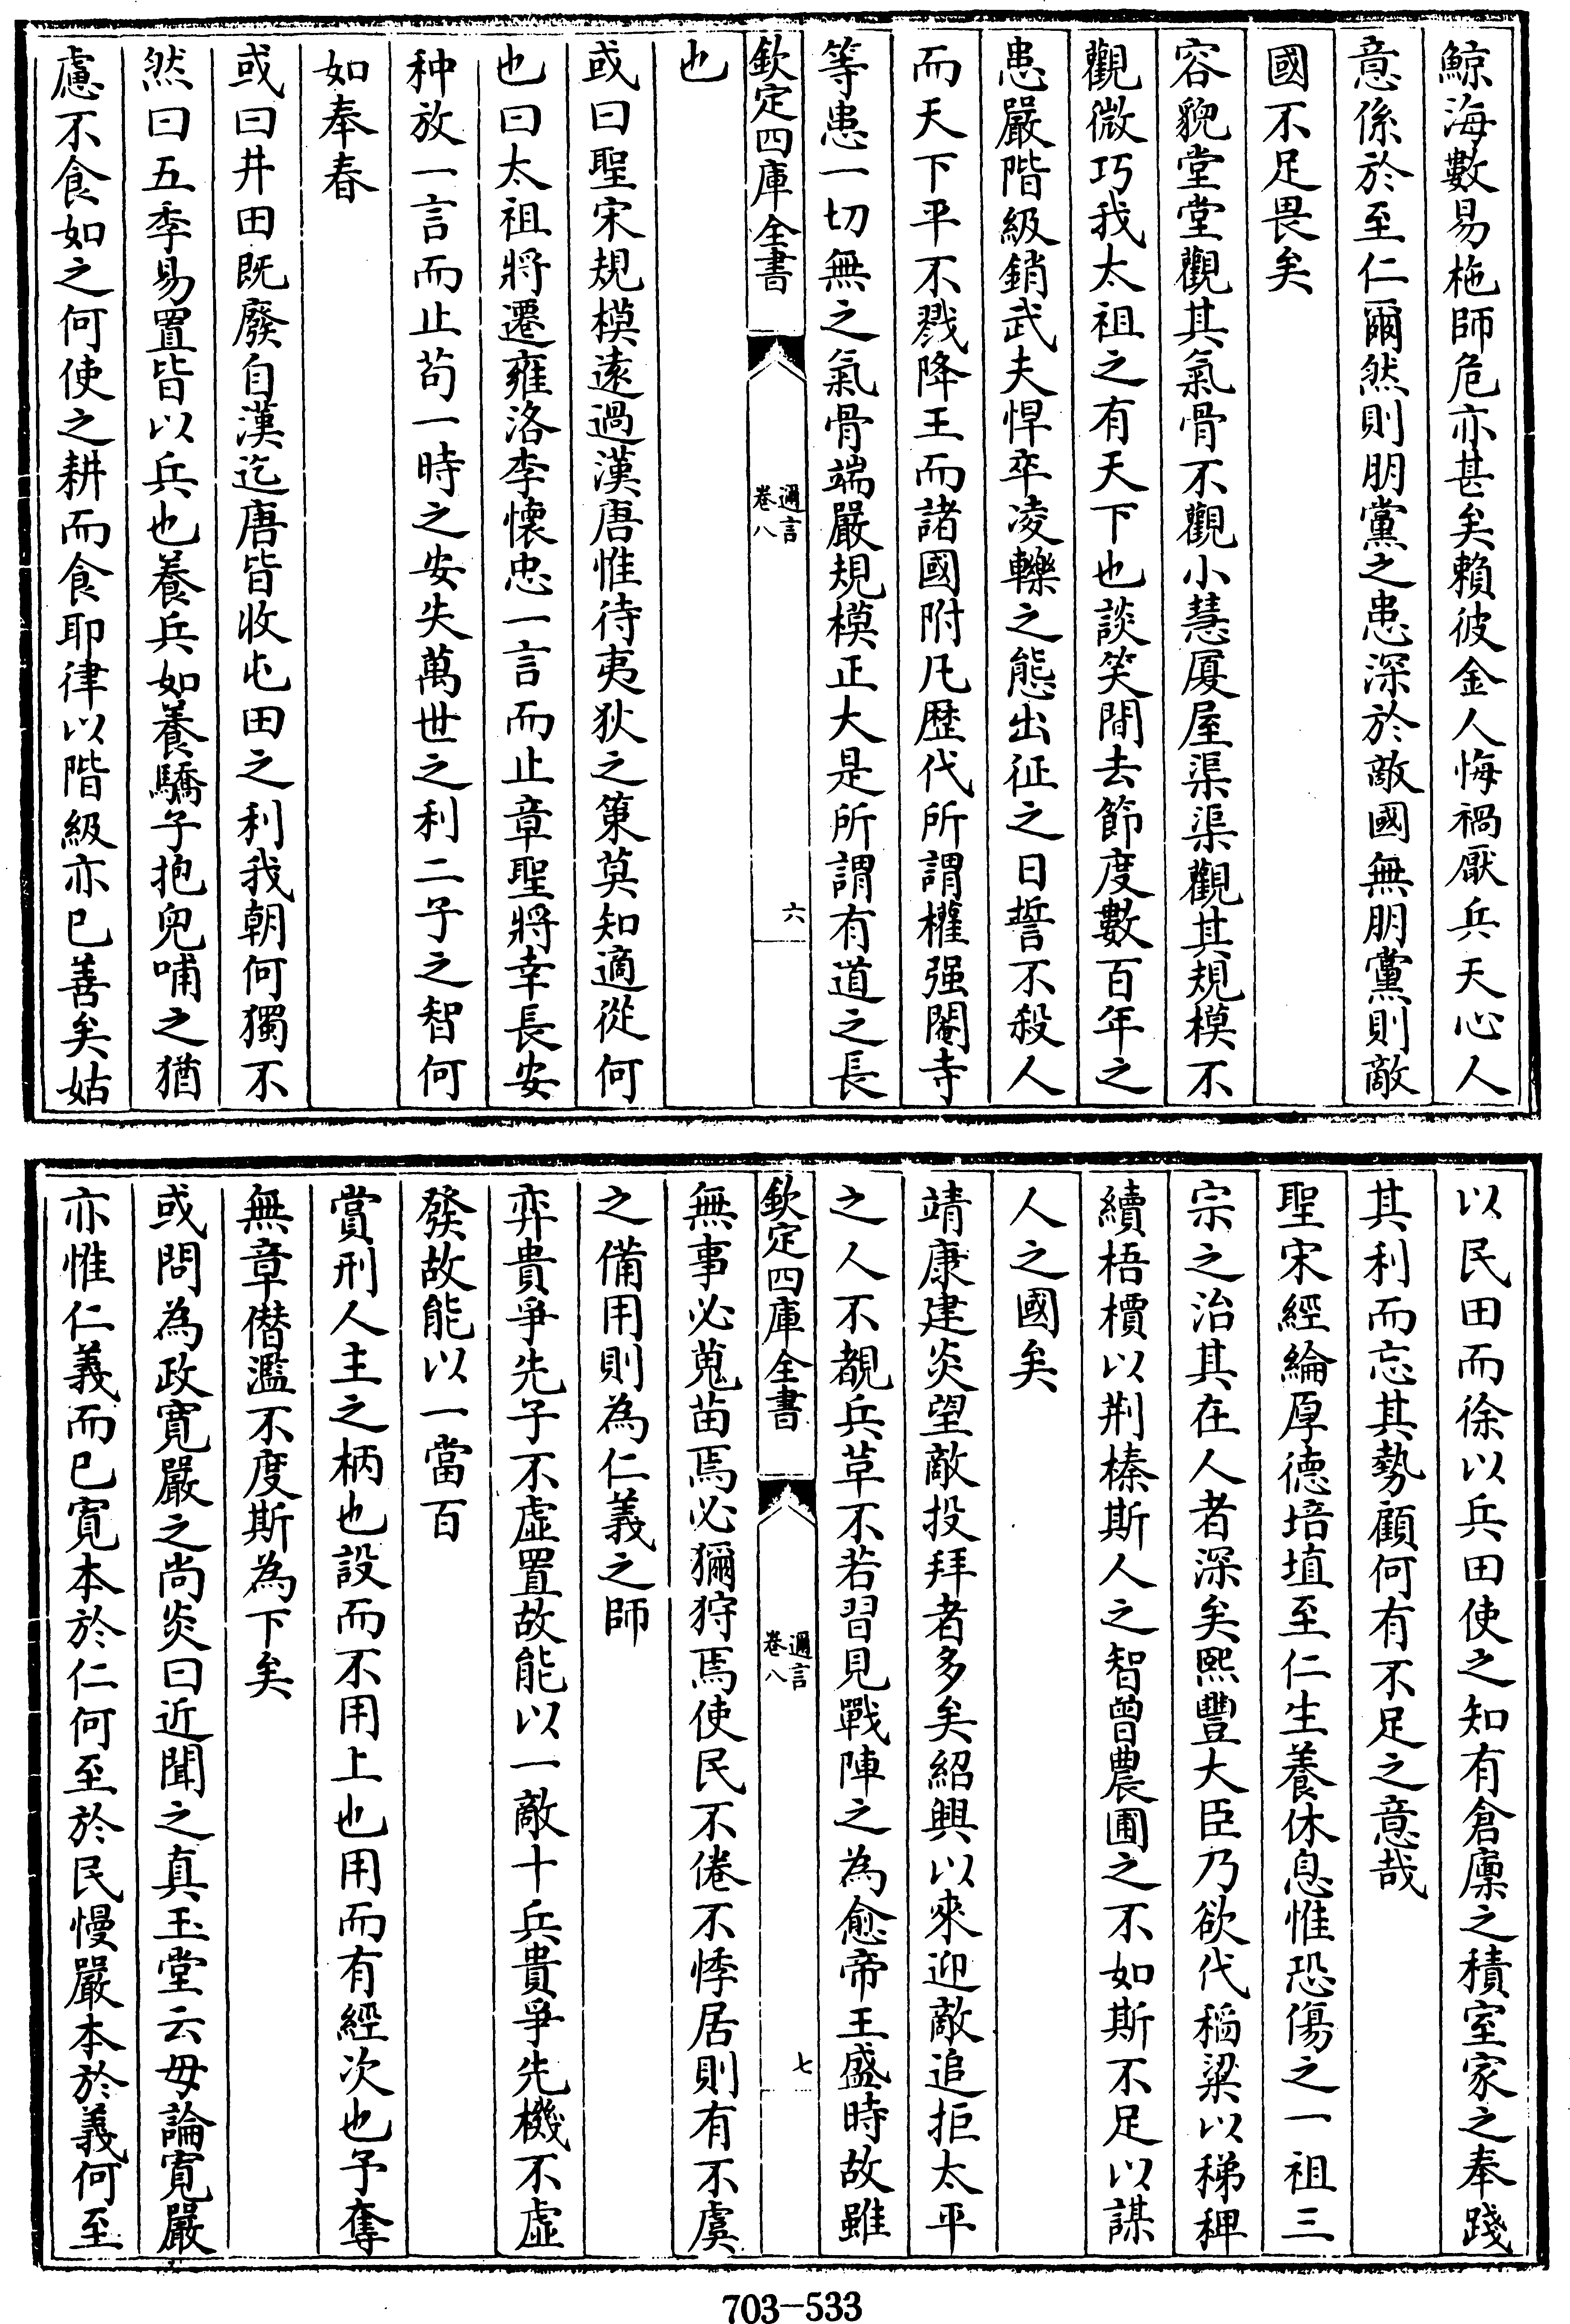 鯨海數易柂師危亦甚矣賴彼金人悔禍厭兵天心人
意係於至仁爾然則朋黨之患深於敵國無朋黨則敵
國不足畏矣
容貌堂堂觀其氣骨不觀小慧厦屋渠渠觀其規模不
觀微巧我太祖之有天下也談笑間去節度數百年之
患嚴階級銷武夫悍卒凌轢之態出征之日誓不殺人
而天下平不戮降王而諸國附凡歴代所謂權强閹寺
等患一切無之氣骨端嚴規模正大是所謂有道之長
欽定四庫全書
邇言
卷八
六
也
或曰聖宋規模遠過漢唐惟待夷狄之策莫知適從何
也曰太祖將遷雍洛李懷忠一言而止章聖將幸長安
种放一言而止苟一時之安失萬世之利二子之智何
如奉春
或曰井田既廢自漢迄唐皆收屯田之利我朝何獨不
然曰五季易置皆以兵也養兵如養驕子抱兒哺之猶
慮不食如之何使之耕而食耶律以階級亦已善矣姑
以民田而徐以兵田使之知有倉廩之積室家之奉踐
其利而忘其勢顧何有不足之意哉
聖宋經綸厚德培埴至仁生養休息惟恐傷之一祖三
宗之治其在人者深矣熙豐大臣乃欲代稻粱以稊稗
續梧檟以荆榛斯人之智曾農圃之不如斯不足以謀
人之國矣
靖康建炎望敵投拜者多矣紹興以來迎敵追拒太平
之人不覩兵革不若習見戰陣之為愈帝王盛時故雖
欽定四庫全書
邇言
卷八
七
無事必蒐苗焉必獮狩焉使民不倦不悸居則有不虞
之備用則為仁義之師
弈貴爭先子不虛置故能以一敵十兵貴爭先機不虛
發故能以一當百
賞刑人主之柄也設而不用上也用而有經次也予奪
無章僭濫不度斯為下矣
或問為政寛嚴之尚炎曰近聞之真玉堂云毋論寛嚴
亦惟仁義而已寛本於仁何至於民慢嚴本於義何至
703-533